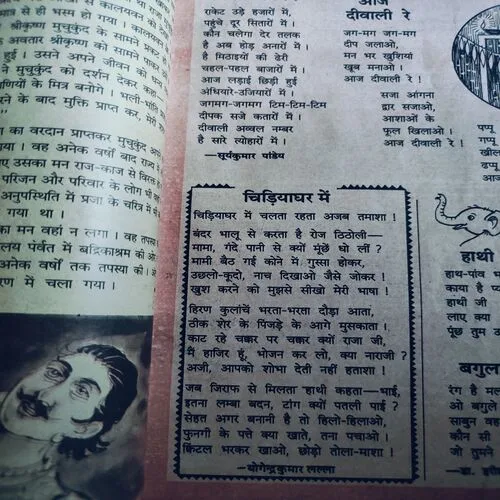 मात्र से ही भस्म हो गया । कालयवन
श्रीकृष्ण मुचुकुंद के सामने प्रकट
अवतार श्रीकृष्ण को सामने पाकर
हुई । उसने अपने जीवन को
ने मुचुकुंद को दर्शन देकर कहा
प्राणियों के मित्र बनोगे । भली-भांति
करने के बाद मुक्ति प्राप्त कर,
का वरदान प्राप्तकर मुचुकुंद अपने
गया । वह अनेक वर्षों बाद राज्य में
उसका मन राज-काज से विरक्त हो
परिजन और परिवार के लोग भी
अनुपस्थिति में प्रजा के चरित्र में भी
गया था ।
का मन वहां न लगा । वह तपस्या
पर्वत में बद्रिकाश्रम की ओर
अनेक वर्षों तक तपस्या की ।
शरण में चला गया ।
राकेट उड़े हजारों में,
पहुंचे दूर सितारों में ।
कौन चलेगा देर तलक
है अब होड़ अनारों में ।
है मिठाइयों की ढेरी
चहल-पहल बाजारों में ।
आज लड़ाई छिड़ी हुई
अंधियारे-उजियारों में ।
जगमग-जगमग टिम-टिम-टिम
दीपक सजे कतारों में ।
दीवाली अव्वल नम्बर
है सारे त्योहारों में ।
—सूर्यकुमार पांडेय
आज
दीवाली रे
जग-मग जग-मग
दीप जलाओ,
मन भर खुशियां
खूब मनाओ ।
आज दीवाली रे !
सजा आंगना
द्वार सजाओ,
आशाओं के
फूल खिलाओ ।
आज दीवाली रे !
चिड़ियाघर में
चिड़ियाघर में चलता रहता अजब तमाशा !
बंदर भालू से करता है रोज ठिठोली—
मामा, गंदे पानी से क्यों मूंछें धो लीं ?
मामी बैठ गई कोने में गुस्सा होकर,
उछलो-कूदो, नाच दिखाओ जैसे जोकर !
खुश करने को मुझसे सीखो मेरी भाषा !
हिरण कुलांचें भरता-भरता दौड़ा आता,
ठीक शेर के पिंजड़े के आगे मुसकाता ।
काट रहे चक्कर पर चक्कर क्यों राजा जी,
मैं हाजिर हूं, भोजन कर लो, क्या नाराजी ?
अजी, आपको शोभा देती नहीं हताशा !
जब जिराफ से मिलता हाथी कहता—भाई,
इतना लम्बा बदन, टांग क्यों पतली पाई ?
सेहत अगर बनानी है तो हिलो-हिलाओ,
फुनगी के पत्ते क्या खाते, तना पचाओ ।
क्विंटल भरकर खाओ, छोड़ो तोला-माशा !
—योगेन्द्रकुमार लल्ला
पप्पू
गप्पू
आज
हाथी
हाथ-पांव
काया है
हाथी जी
लाए क्या
पूंछ तुम
बगुल
रंग है
ओ बगुले
साबुन
कौन सी
जो तुमने
—डा.